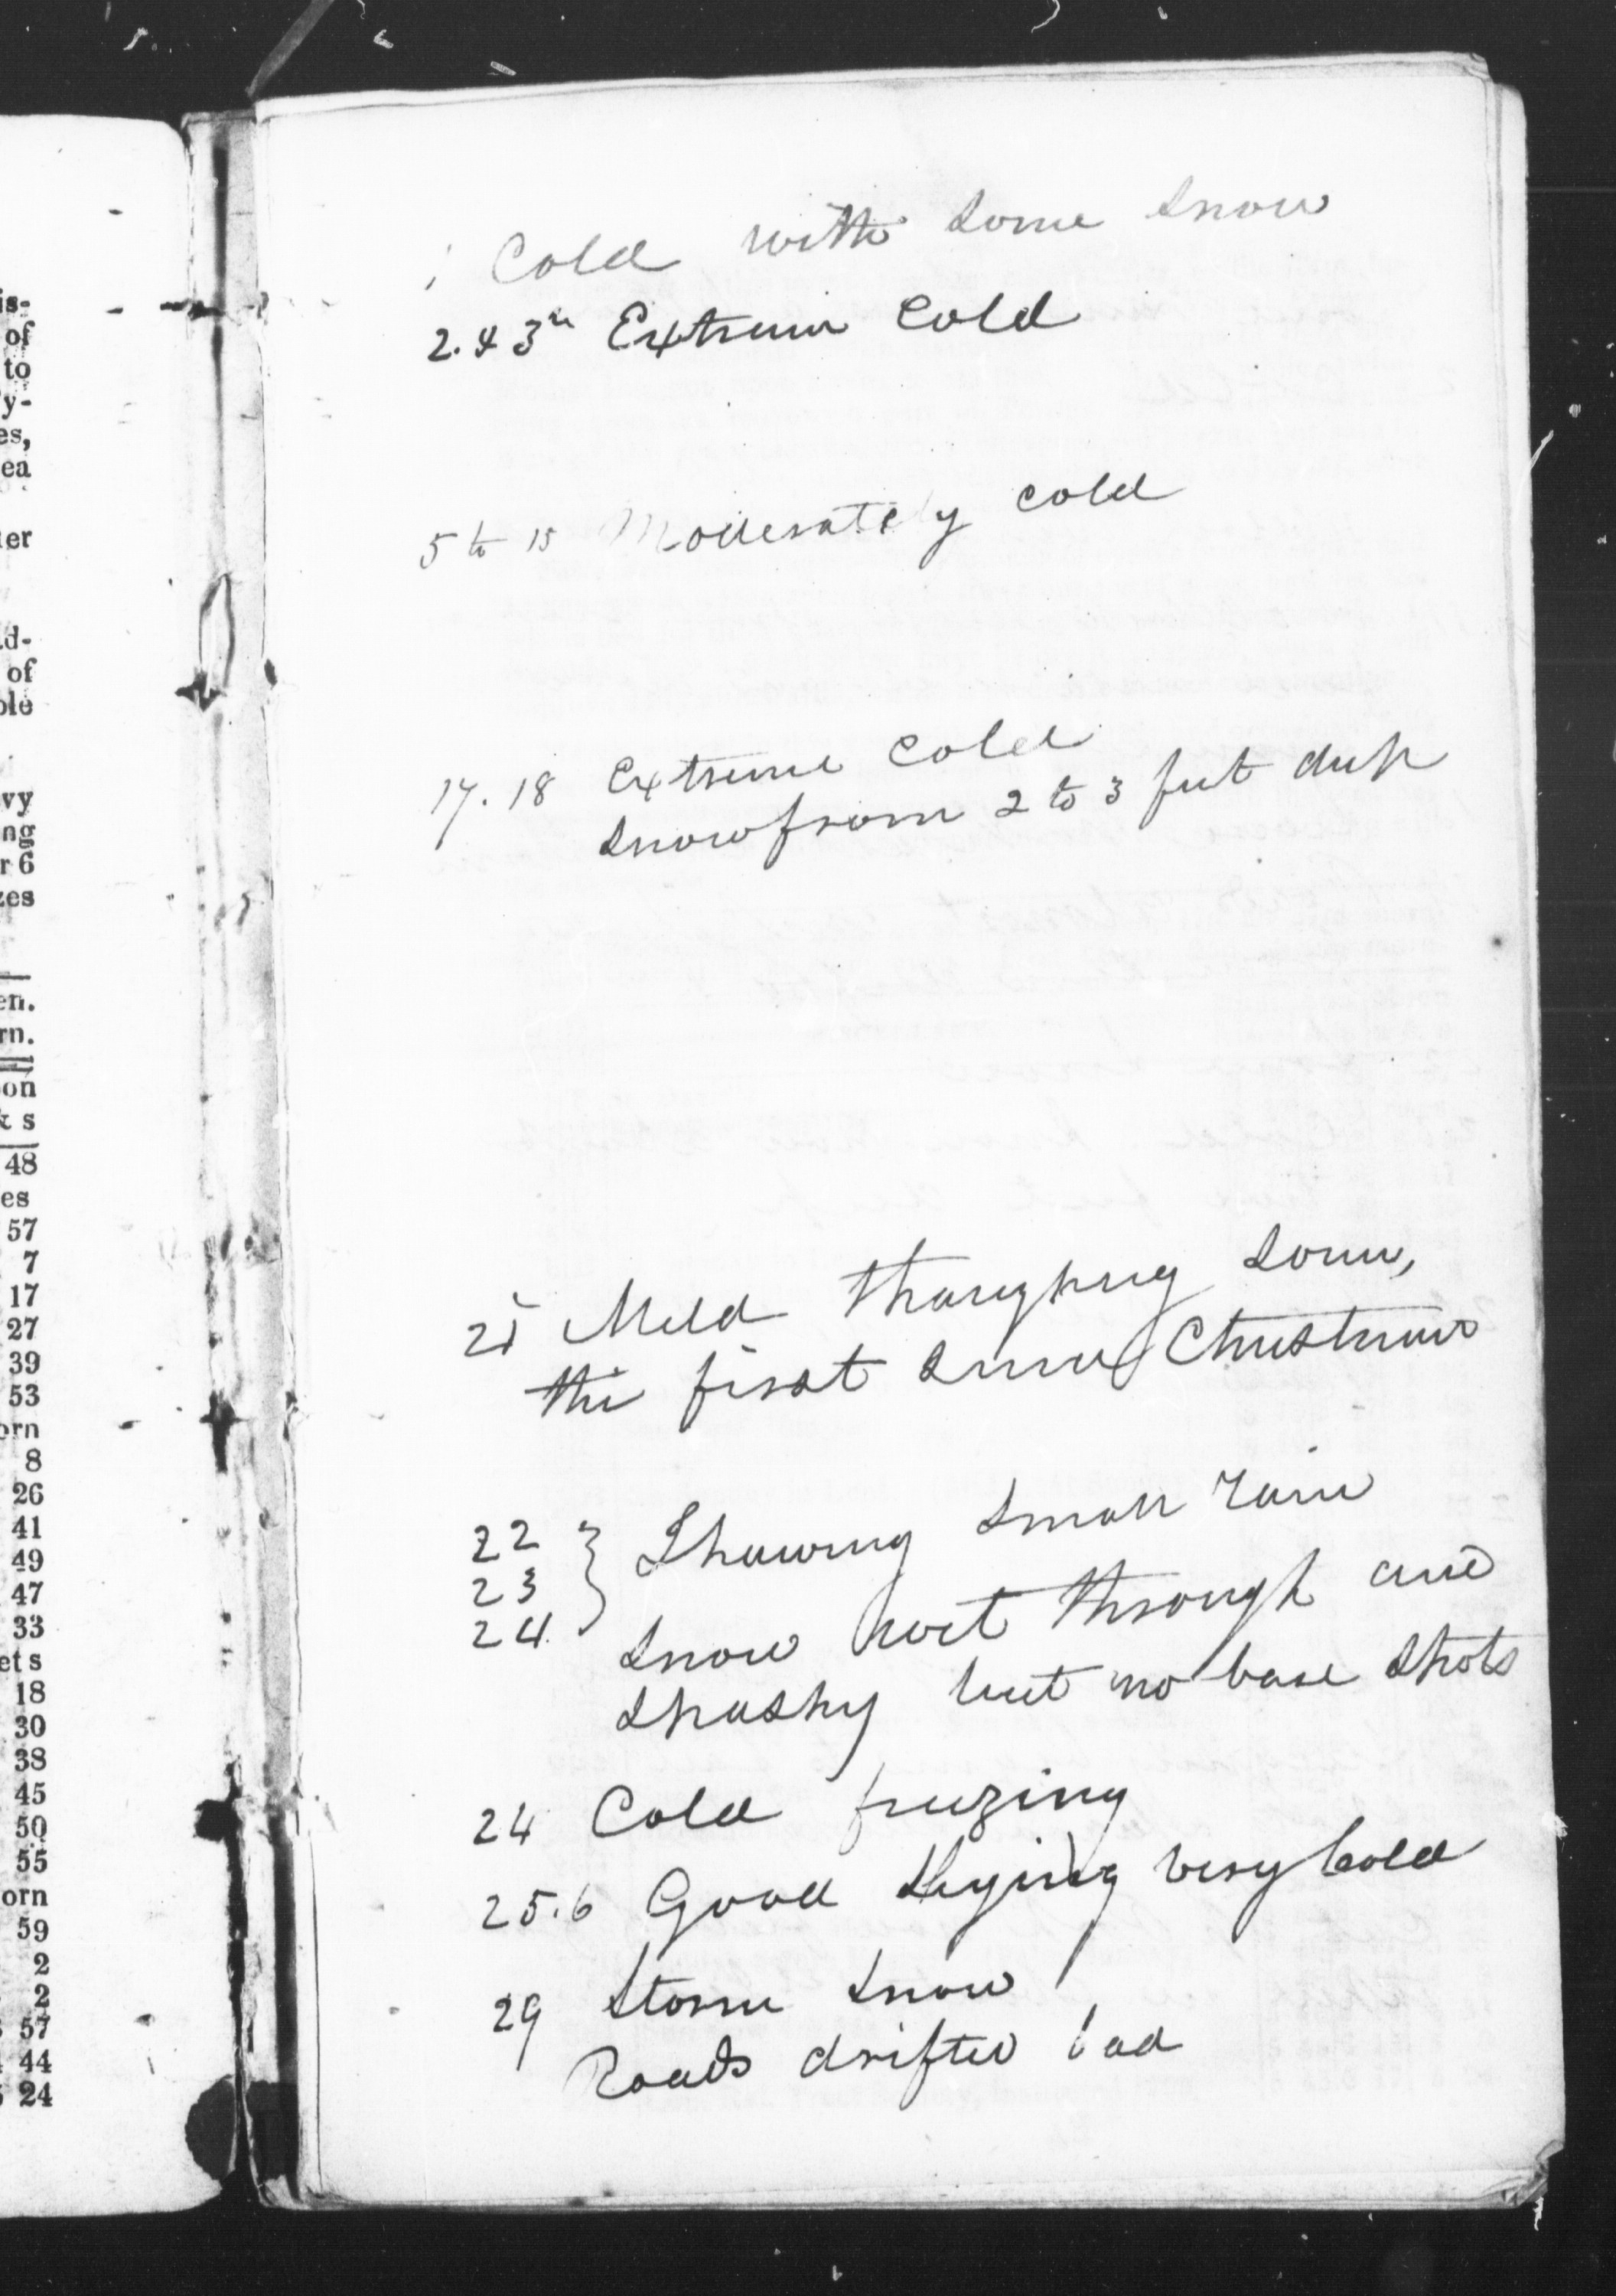 is-
of
to
y-
es,
ea
ter
d-
of
ole
vy
ng
r 6
zes
en.
rn.
on
& s
48
es
57
7
17
27
39
53
orn
8
26
41
49
47
33
ets
18
30
38
45
50
55
orn
59
2
2
57
44
24
1 Cold with some snow
2. & 3 Extreme Cold
5 to 15 Moderately cold
17. 18 Extreme Cold
snow from 2 to 3 feet deep
21 Mild some,
the first since Christmas
22 } Thawing small rain
23
24 snow wet through and
sposhy but no bare spots
24 Cold freezing
25.6 Good slaying very Cold
29 Storm snow
Roads drifted bad